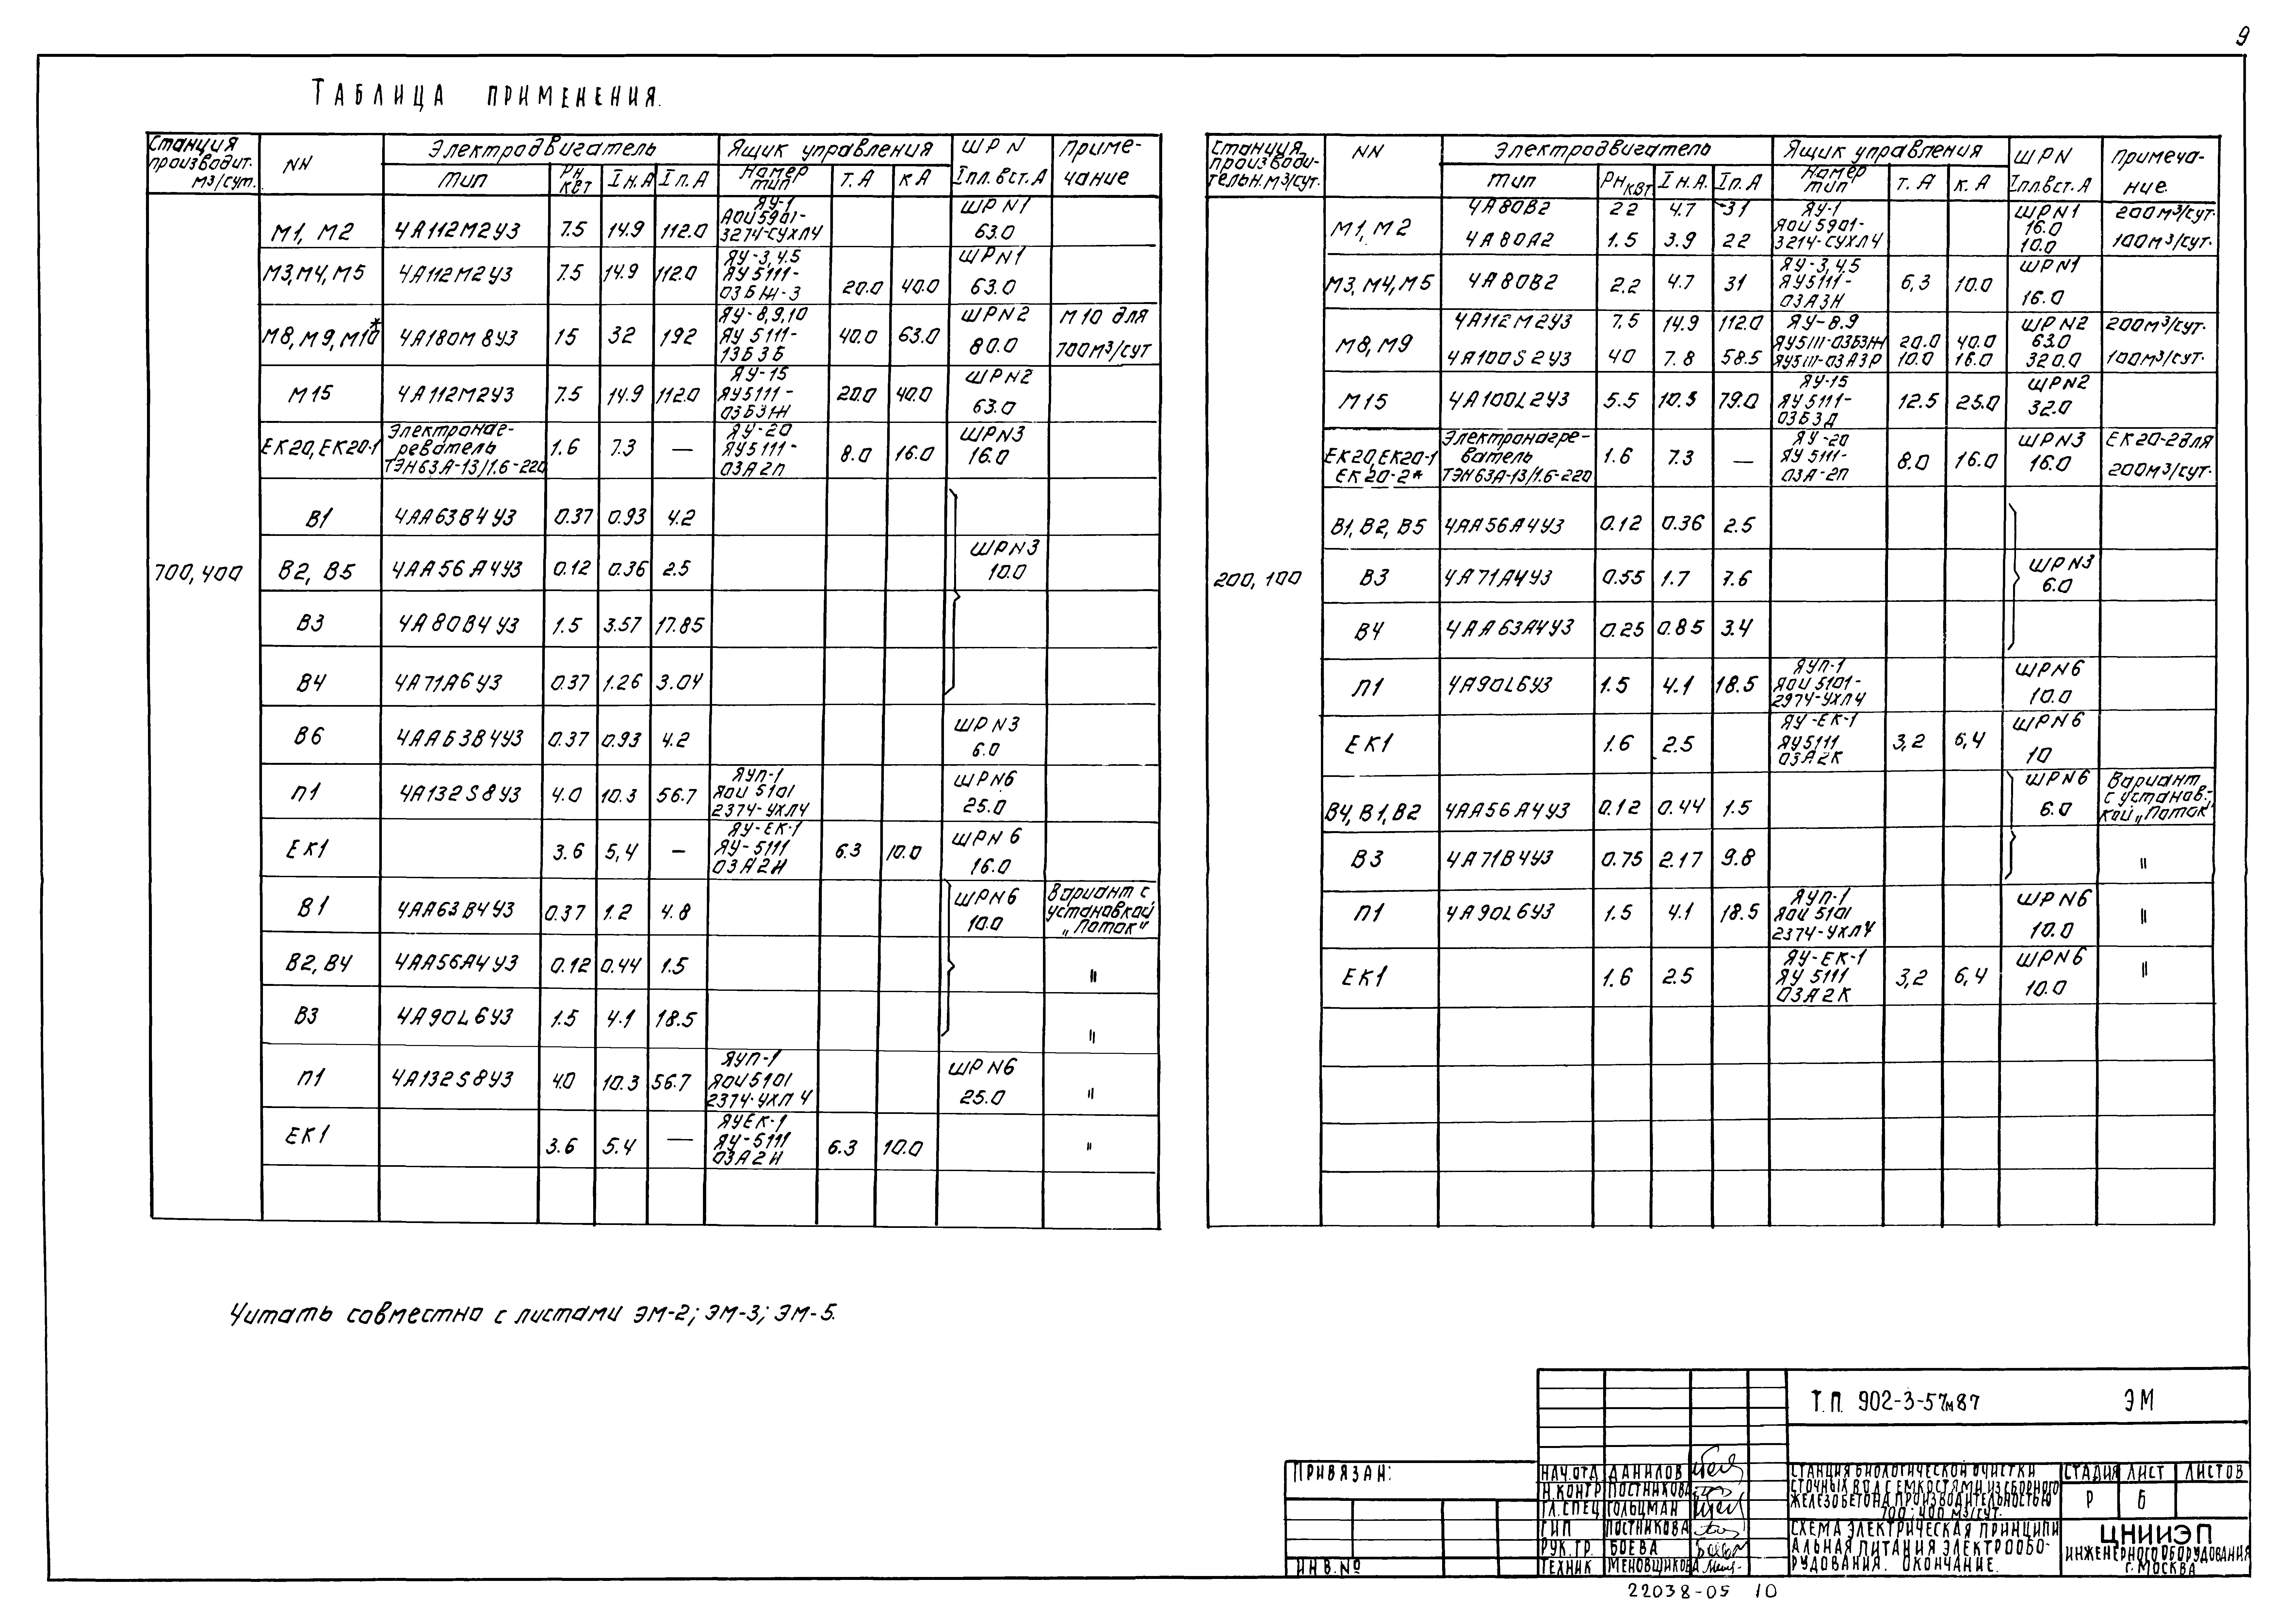 9
Таблица применения.
Станция производит. м3/сут. NN Электродвигатель Ящик управления ШРN Приме-
Тип Рн квт Iн.А Iп.А Номер тип Т.А К А Iпл.вст.А чание
700,400
М1, М2 4А112М2У3 7.5 14.9 112.0 ЯУ-1 ЯОU5901-3274-СУХЛ4 ШРN1 63.0
М3,М4,М5 4А112М2У3 7.5 14.9 112.0 ЯУ-3,4.5 ЯУ5111-03Б1Н-3 20.0 40.0 ШРN1 63.0
М8, М9, М10* 4А180М8У3 15 32 192 ЯУ-8,9,10 ЯУ 5111-13Б3Б 40.0 63.0 ШРN2 80.0 М10 для 700м3/сут
М15 4А112М2У3 7.5 14.9 112.0 ЯУ-15 ЯУ5111-03Б31Н 20.0 40.0 ШРN2 63.0
ЕК20, ЕК20-1 Электронаг-реватель ТЭН63А-13/1.6-220 1.6 7.3 — ЯУ-20 ЯУ5111-03А2П 8.0 16.0 ШРN3 16.0
В1 4АА63В4У3 0.37 0.93 4.2
В2, В5 4АА56А4У3 0.12 0.36 2.5 ШРN3 10.0
В3 4А80В4У3 1.5 3.57 17.85
В4 4А71А6У3 0.37 1.26 3.04
В6 4АА63В4У3 0.37 0.93 4.2 ШРN3 6.0
П1 4А132S8У3 4.0 10.3 56.7 ЯУП-1 ЯОU 5101 2374-УХЛ4 ШРN6 25.0
ЕК1 3.6 5,4 – ЯУ-ЕК-1 ЯУ-5111 03А2Н 6.3 10.0 ШРN 6 16.0
В1 4АА63В4У3 0.37 1.2 4.8 ШРN6 10.0 Вариант с установкой „Поток"
В2, В4 4АА56А4У3 0.12 0.44 1.5 "
В3 4А90L6У3 1.5 4.1 18.5 "
П1 4А132S8У3 4.0 10.3 56.7 ЯУП-1 ЯОU5101 2374-УХЛ 4 ШРN6 25.0 "
ЕК1 3.6 5.4 — ЯУЕК-1 ЯУ-5111 03А2Н 6.3 10.0 "
Станция производи-тельн.м3/сут. NN Электродвигатель Ящик управления ШРN Примеча-
Тип Рн квт Iн.А. Iп.А Номер тип Т.А К.А Iпл.вст.А ние.
200, 100
М1, М2 4А80В2 22 4.7 31 ЯУ-1 ЯОU5901-3214-СУХЛ4 ШРN1 16.0 200м3/сут.
4А80А2 1.5 3.9 22 10.0 100м3/сут.
М3, М4, М5 4А80В2 2.2 4.7 31 ЯУ-3,4.5 ЯУ5111-03А3Н 6,3 10.0 ШРN1 16.0
М8, М9 4А112М2У3 7.5 14.9 112.0 ЯУ-8.9 ЯУ5111-03Б31Н 20.0 40.0 ШРN2 63.0 200м3/сут.
4А100S2У3 40 7.8 58.5 ЯУ5111-03А3Р 10.0 16.0 320.0 100м3/сут.
М15 4А100L2У3 5.5 10.5 79.0 ЯУ-15 ЯУ5111-03Б3Д 12.5 25.0 ШРN2 32.0
ЕК20,ЕК20-1 ЕК20-2* Электронагре-ватель ТЭН63А-13/1.6-220 1.6 7.3 — ЯУ-20 ЯУ 5111-03А-2П 8.0 16.0 ШРN3 16.0 ЕК20-2для 200м3/сут.
В1, В2, В5 4АА56А4У3 0.12 0.36 2.5
В3 4А71А4У3 0.55 1.7 7.6 ШРN3 6.0
В4 4АА63А4У3 0.25 0.85 3.4
П1 4А90L6У3 1.5 4.1 18.5 ЯУП-1 ЯОU 5101-2974-УХЛ4 ШРN6 10.0
ЕК1 1.6 2.5 ЯУ-ЕК-1 ЯУ5111 03А2К 3,2 6,4 ШРN6 10
В4, В1, В2 4АА56А4У3 0.12 0.44 1.5 ШРN6 6.0 Вариант с установ-кой „Поток"
В3 4А71В4У3 0.75 2.17 9.8 "
П1 4А90L6У3 1.5 4.1 18.5 ЯУП-1 ЯОU 5101 2374-УХЛ4 ШРN6 10.0 "
ЕК1 1.6 2.5 ЯУ-ЕК-1 ЯУ 5111 03А2К 3,2 6,4 ШРN6 10.0 "
Читать совместно с листами ЭМ-2; ЭМ-3; ЭМ-5.
Т.П. 902-3-57м87 ЭМ
Привязан:
ИНВ.№
Нач.отд Данилов
Н.контр Постникова
Гл.спец Гольцман
ГИП Постникова
Рук.гр. Боева
Техник Меновщикова
Станция биологической очистки
сточных вод с емкостями из сборного
железобетона производительностью
700; 400 м3/сут.
Стадия Лист Листов
Р 6
Схема электрическая принципи
альная питания электрообо-
рудования. Окончание.
ЦНИИЭП
инженерного оборудования
г. Москва
22038-05 10